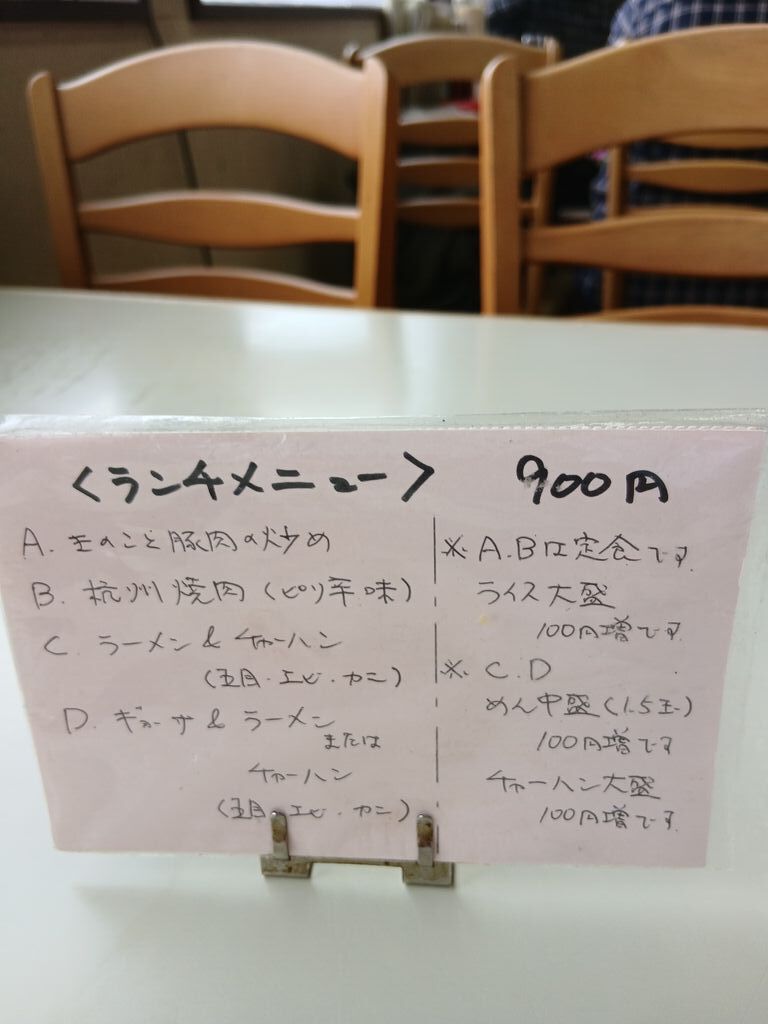 <ランチメニュー> 900円
A. きのこと豚肉の炒め
B. 杭州焼肉(ピリ辛味)
C. ラーメン & チャーハン
(五目・エビ・カニ)
D. ギョーザ & ラーメン
または
チャーハン
(五目・エビ・カニ)
※ A.Bは定食です
ライス大盛
100円増です
※ C.D
めん中盛(1.5玉)
100円増です
チャーハン大盛
100円増です